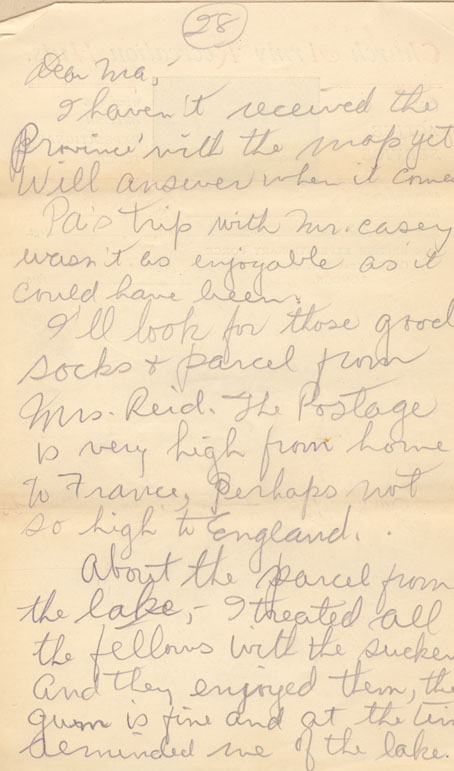 28
Dear Ma,
I haven't received the
Province with the map yet
Will answer when it comes
Pa's trip with Mr. Casey
wasn't as enjoyable as it
could have been.
I'll look for those good
socks & parcel from
Mrs. Reid. The Postage
is very high from home
to France, Perhaps not
so high to England.
About the parcel from
the lake,- I treated all
the fellows with the sucker
And they enjoyed them, the
gum is fine and at the tim
reminded me of the lake.